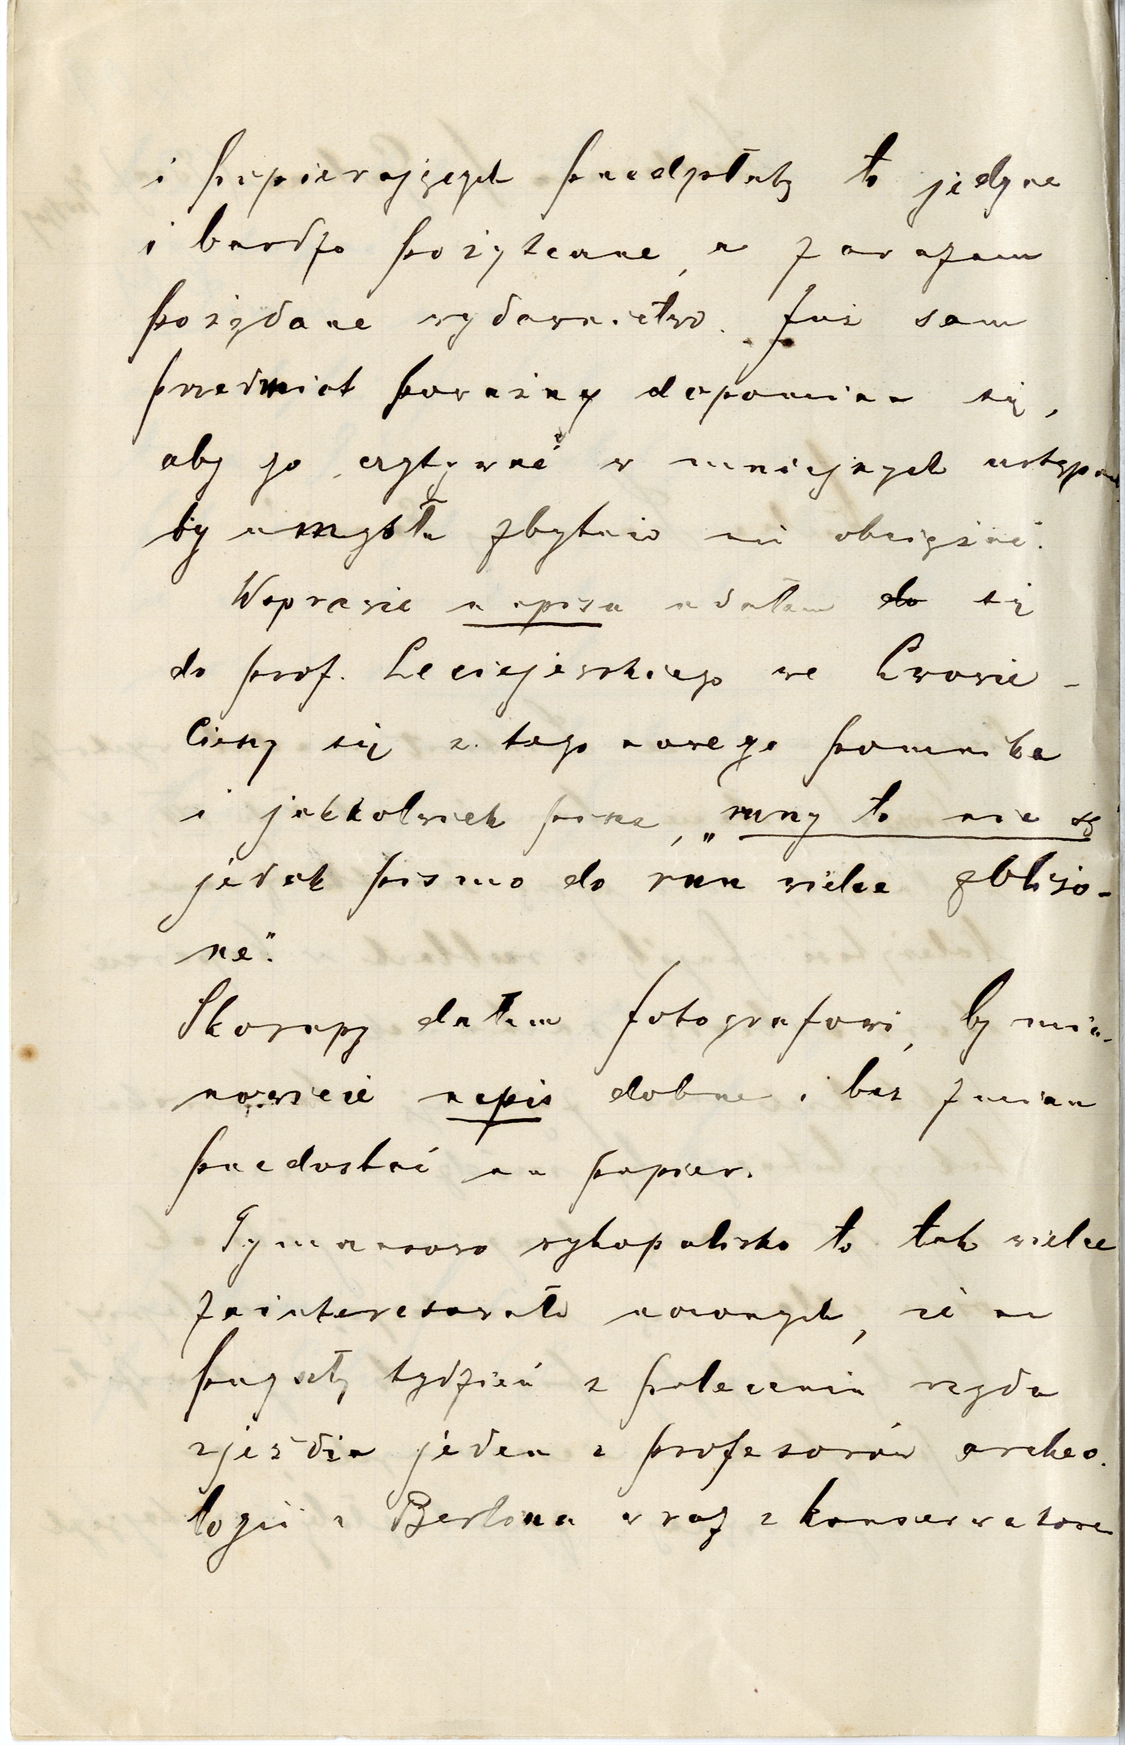 i popierających przedpłatą to jedyne
i bardzo pożyteczne, a zarazem
pożądane wydawnictwo. Już sam
przedmiot poważny dopomina się,
aby go czytywać w mniejszych ustępach
by umysłu zbytnio nie obciążać.
W sprawie napisu udałem do się
do prof. Leciejewskiego we Lwowie –
Cieszy się z tego nowego pomnika
i jakkolwiek pisze, „runy to nie są
jednak pismo do run wielce zbliżo-
ne".
Skorupy dałem fotografowi, by mia-
nowicie napis dobrze i bez zmian
przedostać na papier.
Tymczasowo wykopalisko to tak wielce
zainteresowało uczonych, że na
przyszły tydzień z polecenia rządu
zjeżdża jeden z profesorów archeo-
logii z Berlina wraz z konserwatorem